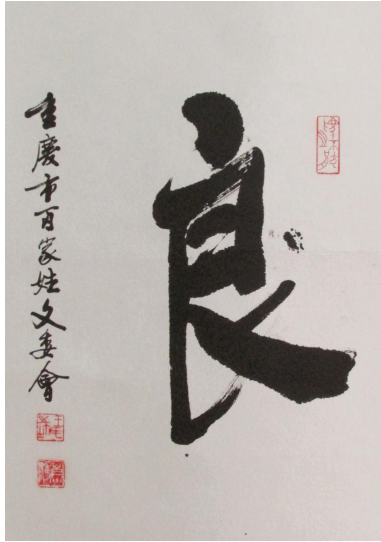 良
重慶市百家姓文委會